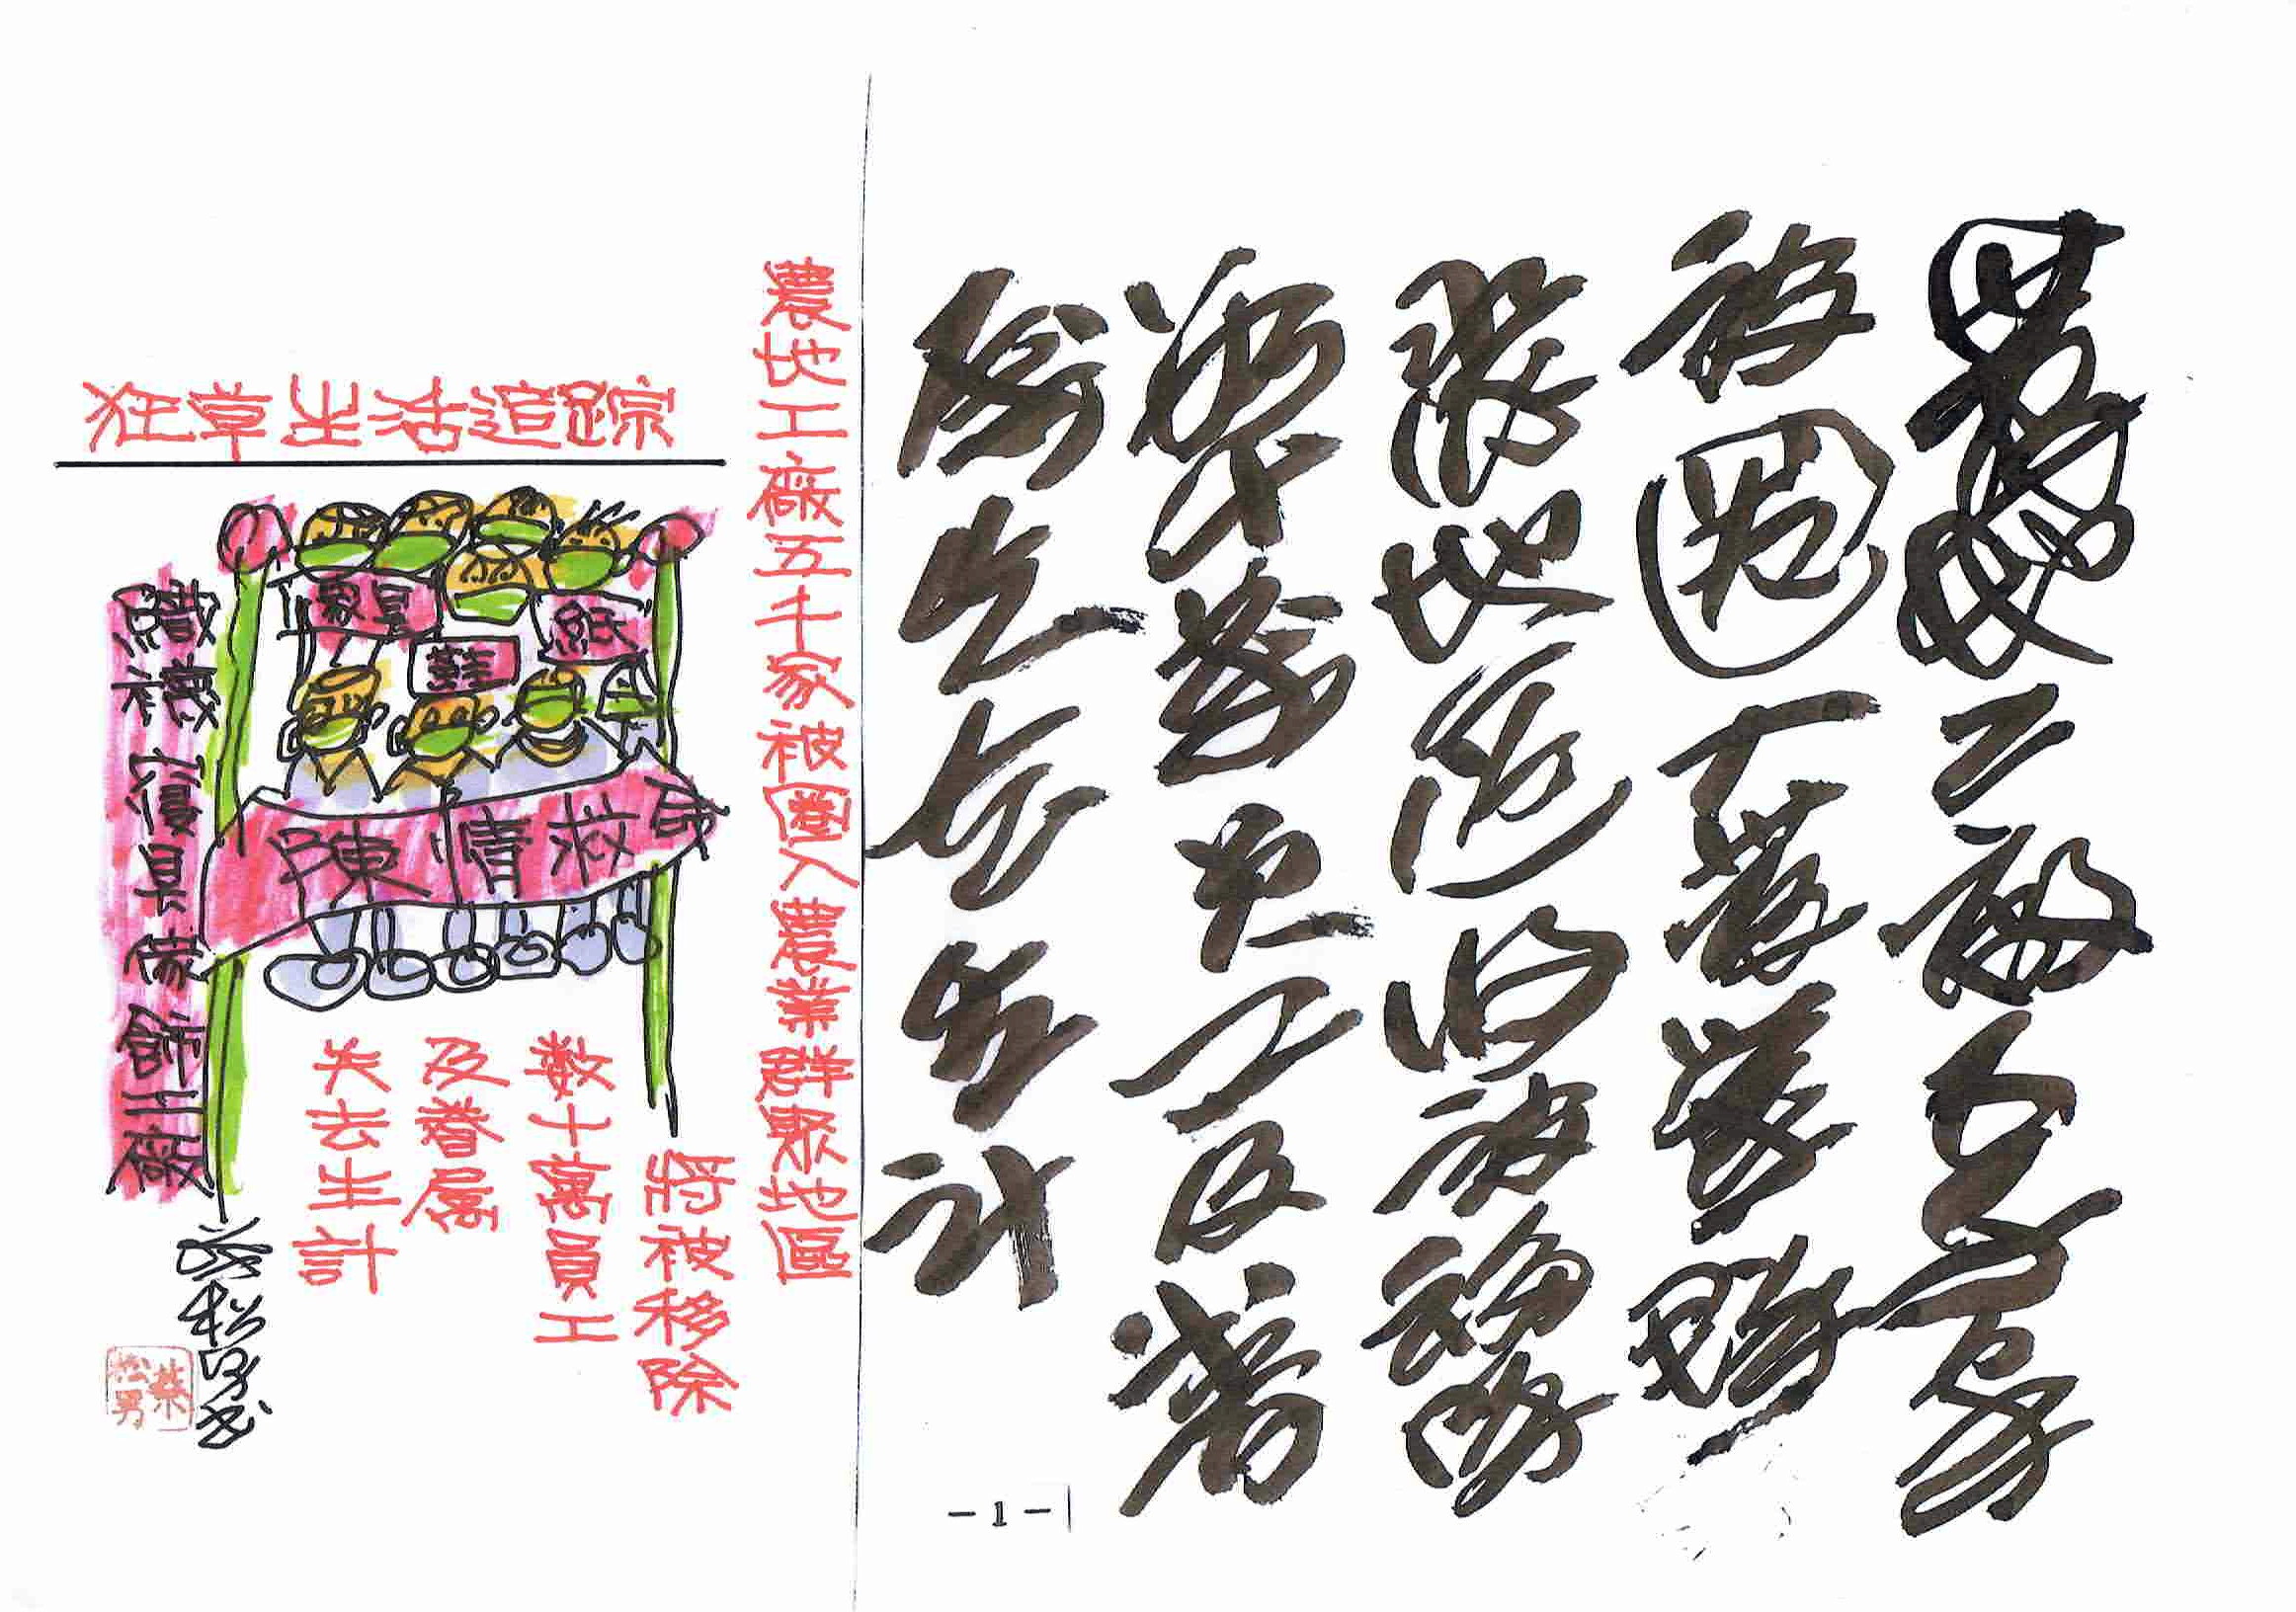 農地工廠五千家
被圈入農業群
聚地區將被移除
數十萬員工及眷
屬失去生計
農地工廠五千家被圈入農業群聚地區
狂草生活追踪
紙
陳情救命
將被移除
数十萬員工
及眷屬
失去生計
織襪寢具傢飾工廠
蔡松男书
蔡松男
-1-